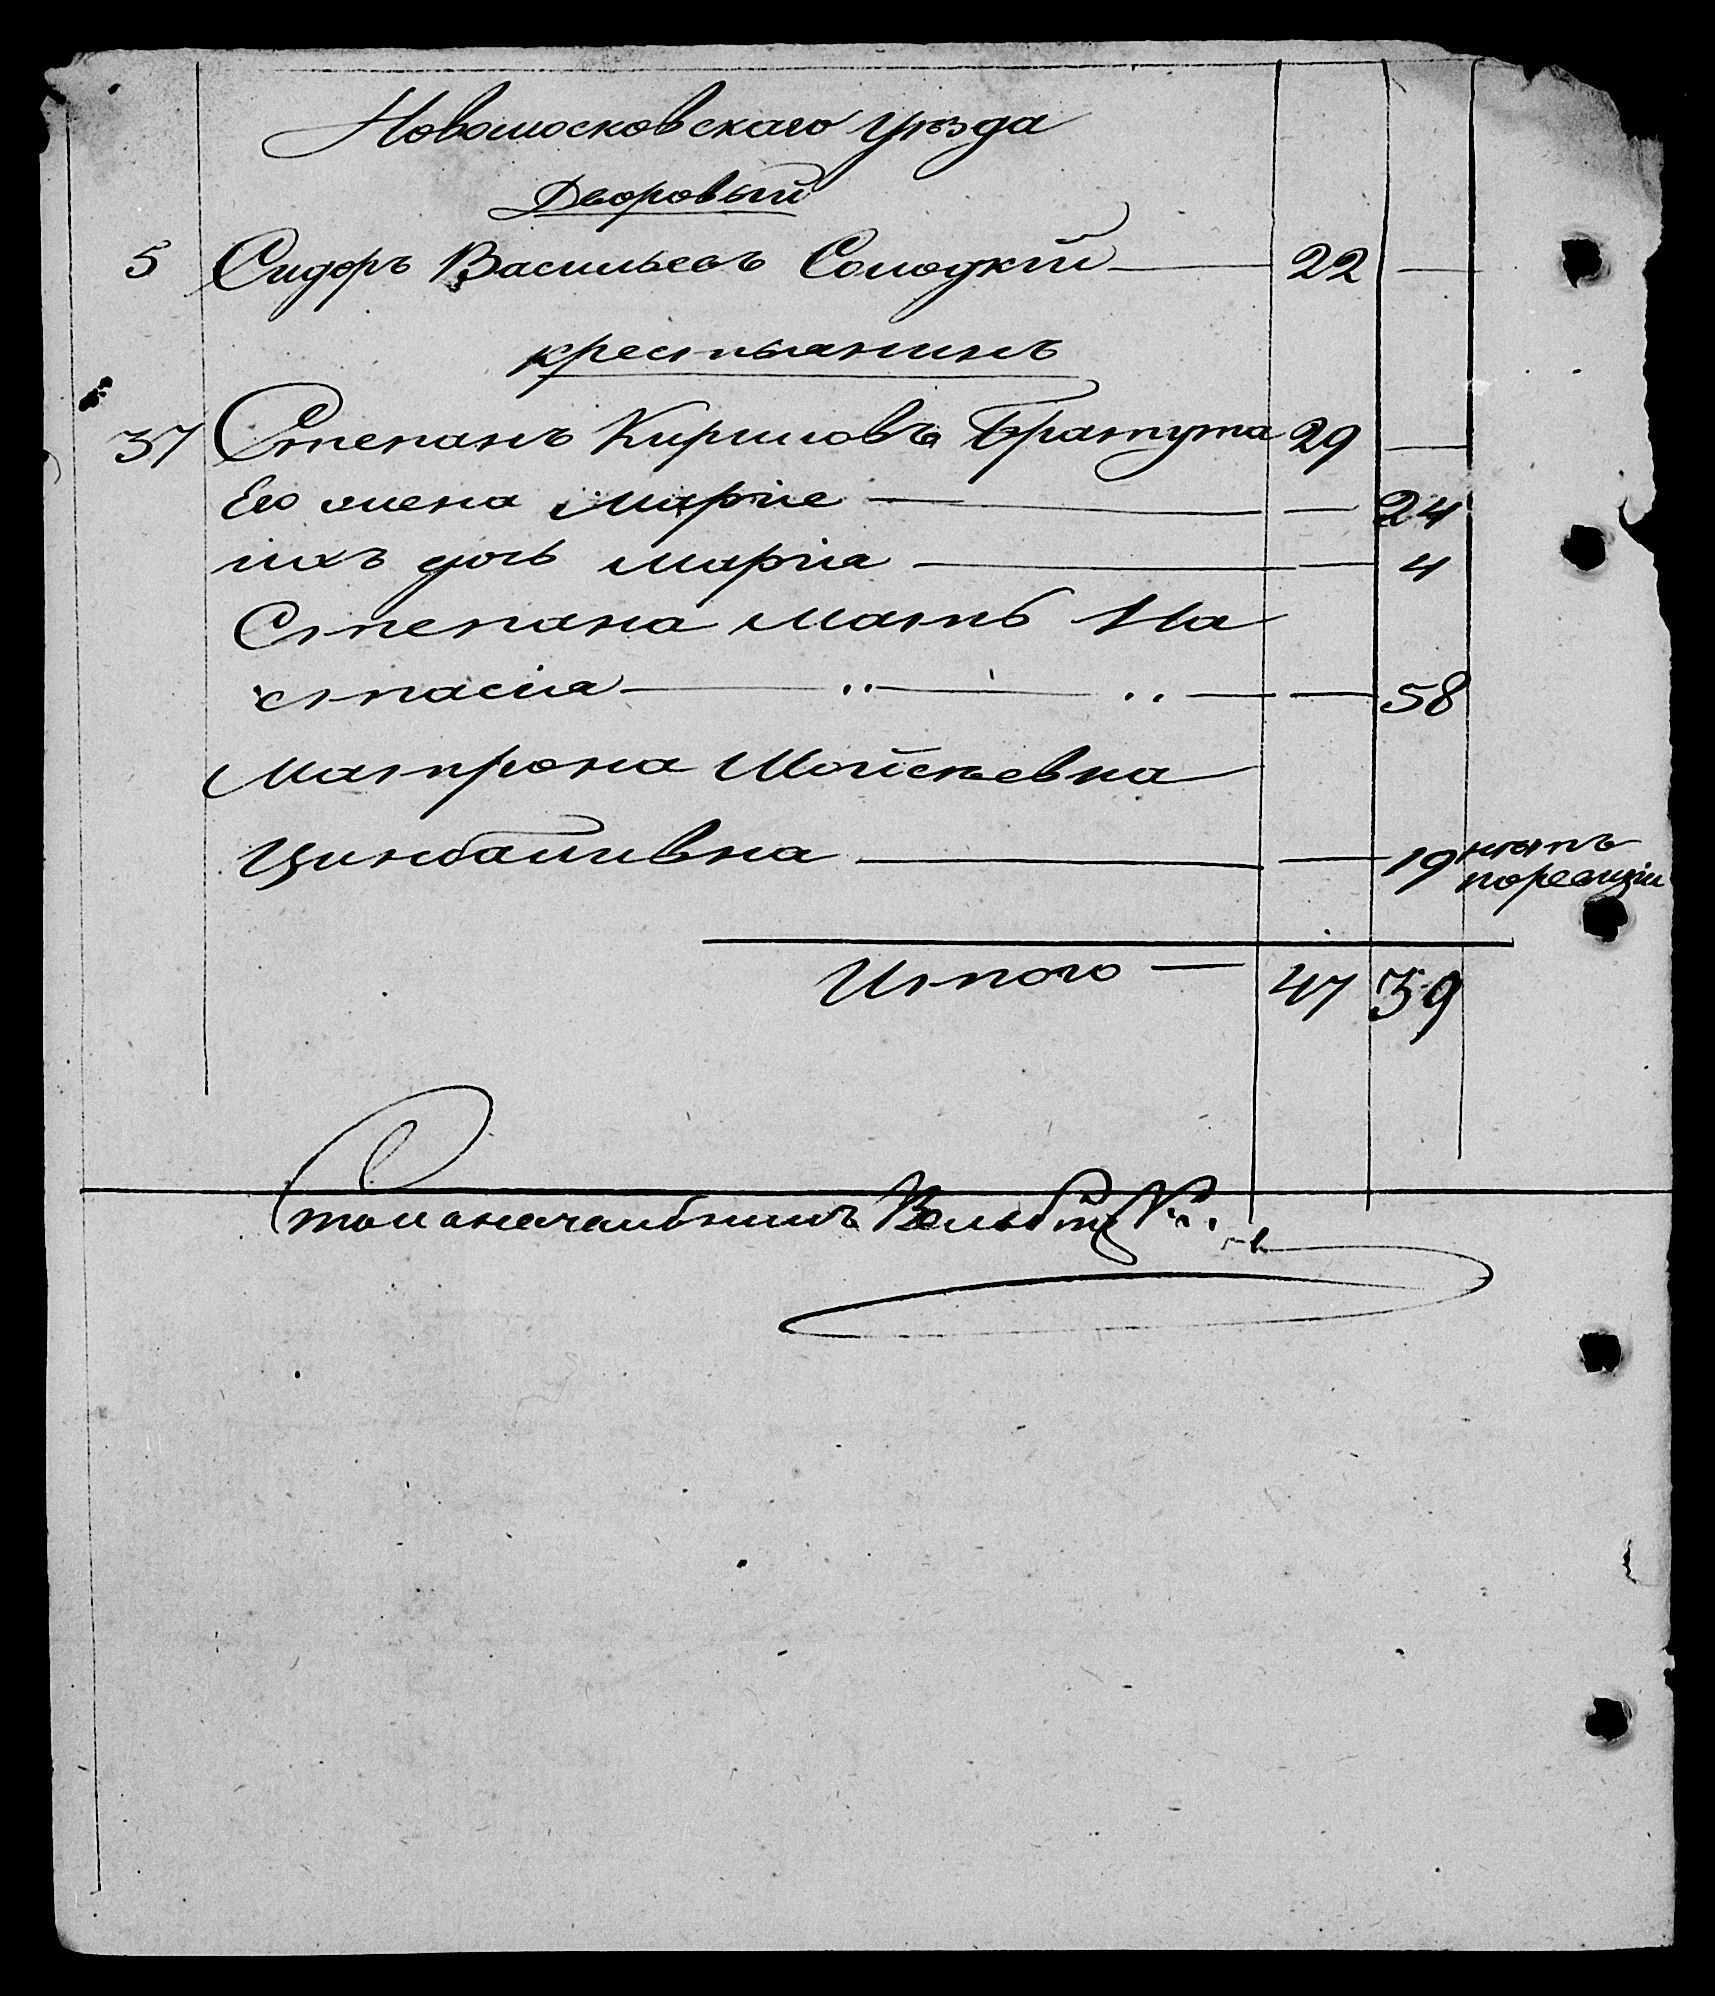 Новомосковскаго уѣзда
Дворовый
5 Сидоръ Васильевъ Солодкій — 22 —
крестьянинъ
37 Степанъ Кириловъ Братута 29 —
Его жена Марiе — — 24
ихъ дочь Марія — — 4
Степана мать На
стасіа — — 58
Матрона Мойсѣевна
Цинбаливна — — 19 нѣтъ
поревизіи
Итого — 47 39